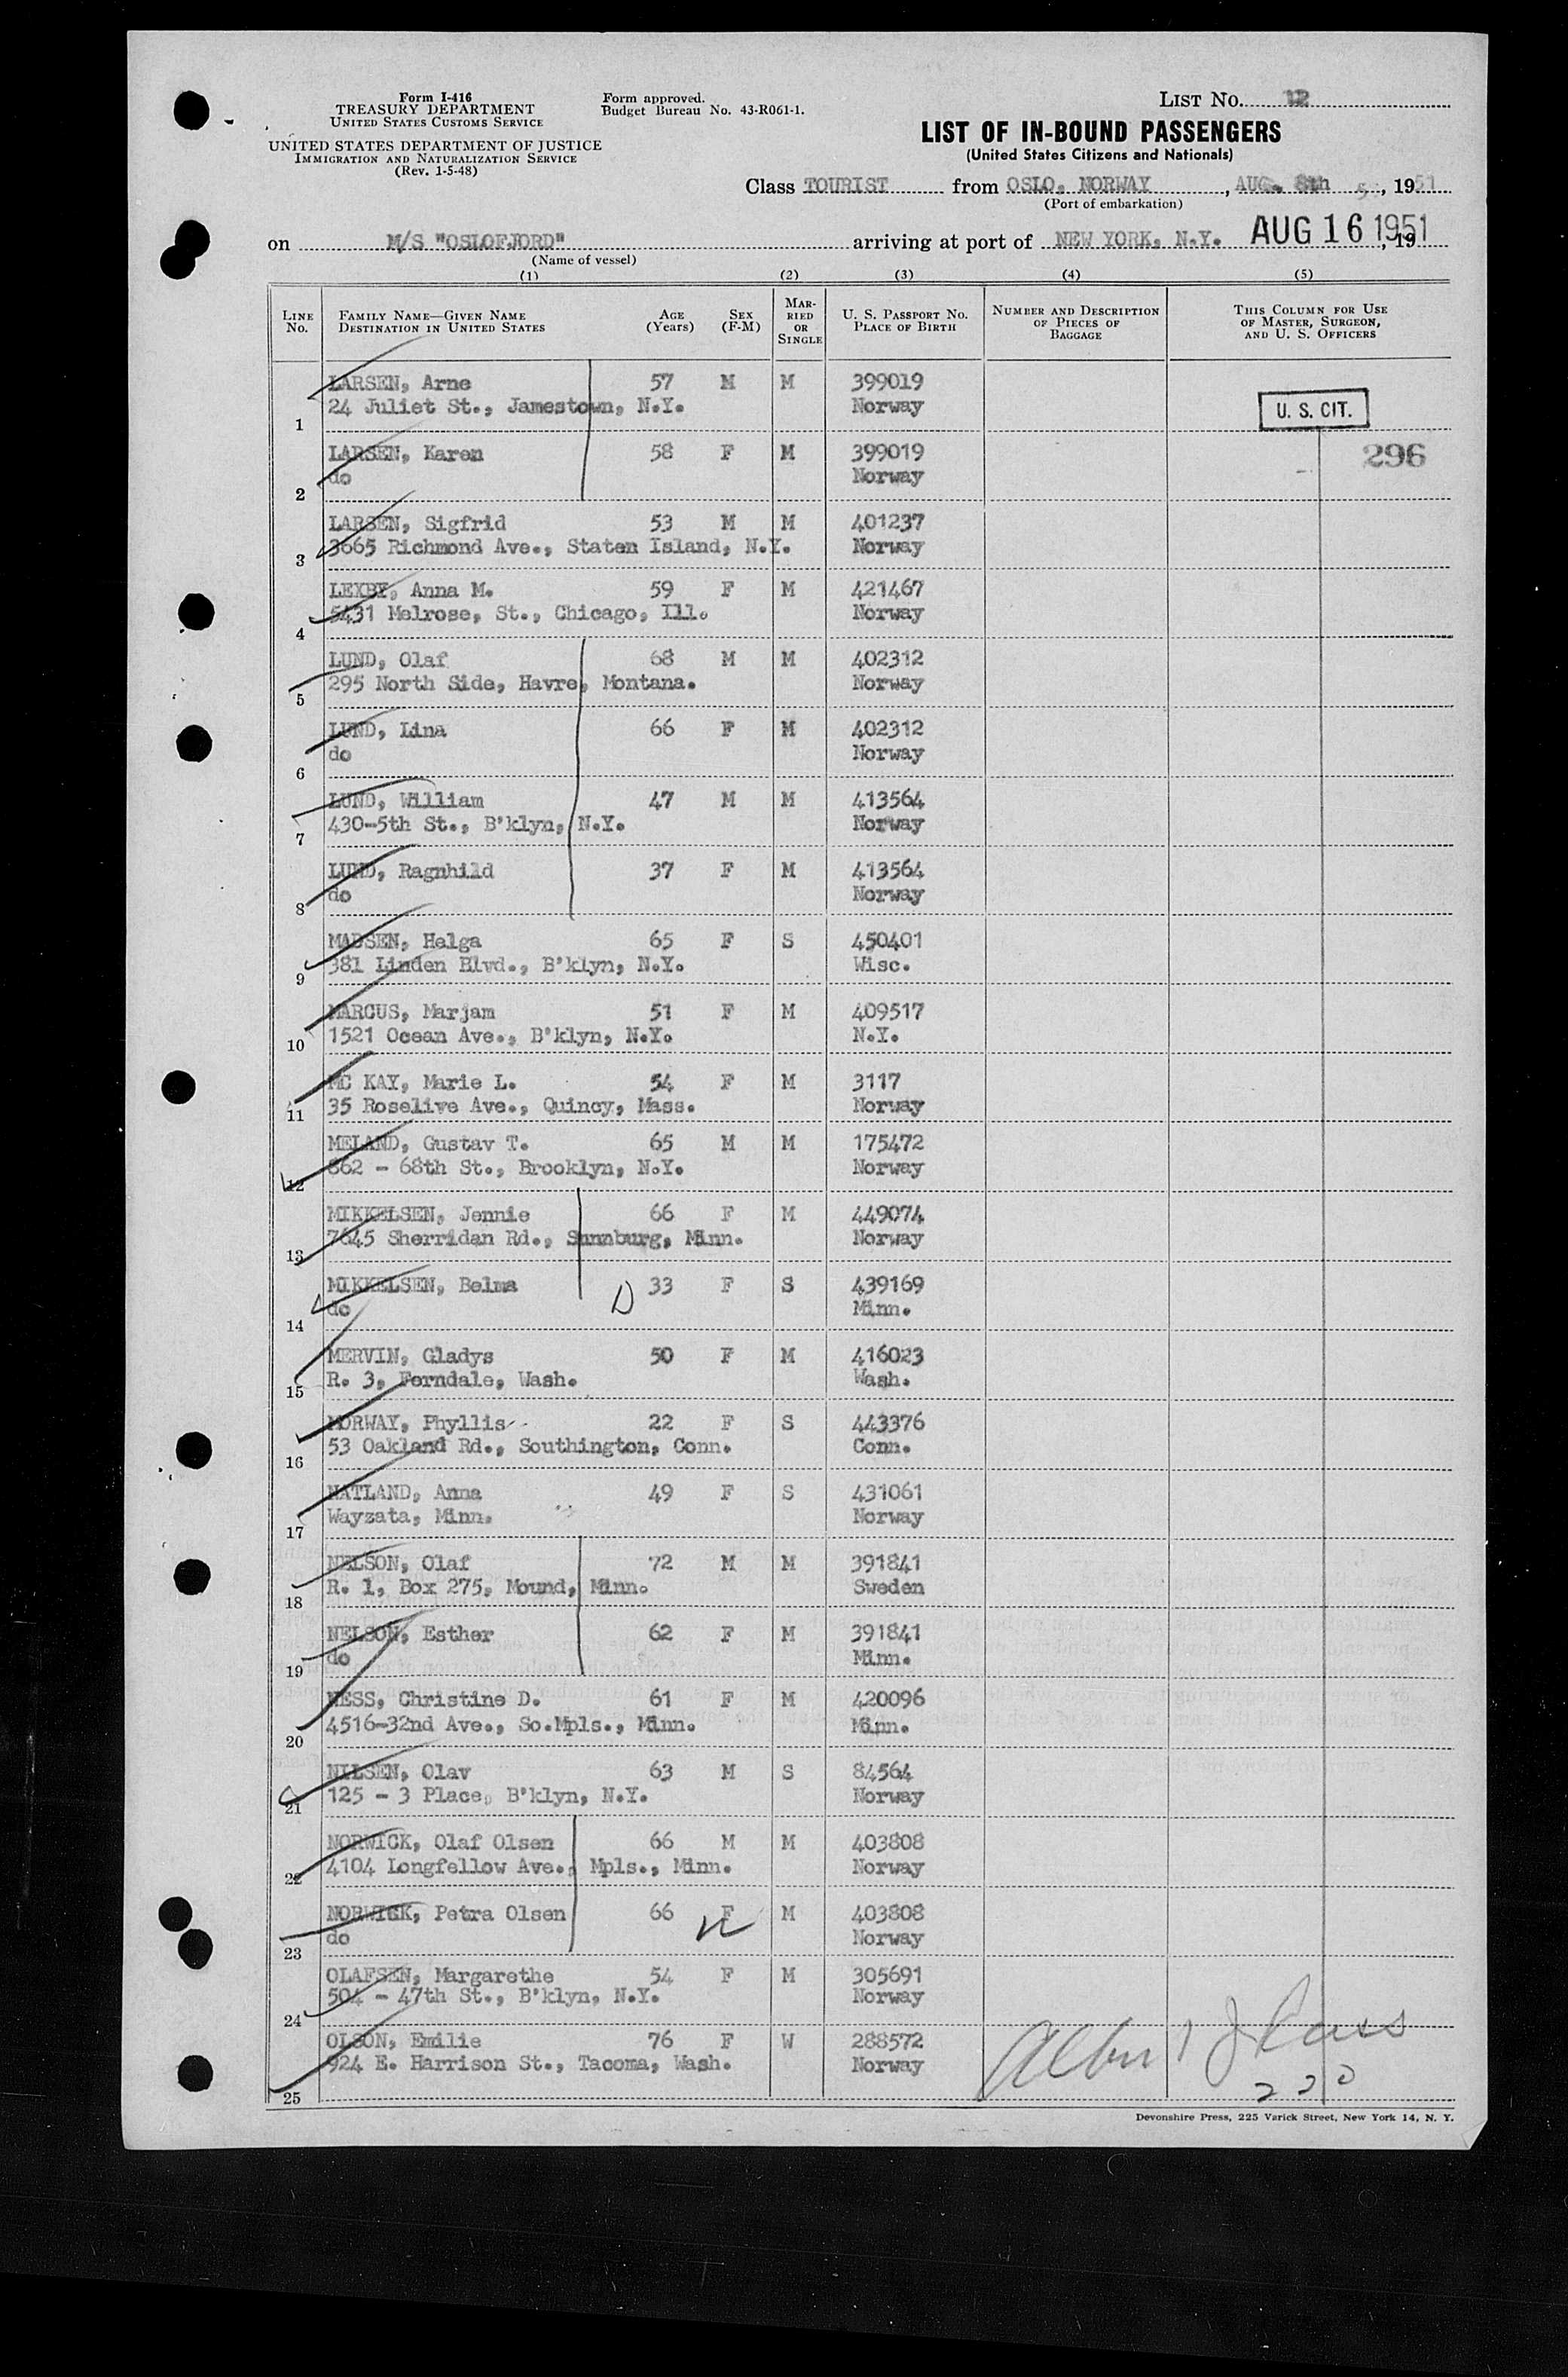 Form I-416
TREASURY DEPARTMENT
UNITED STATES CUSTOMS SERVICE
UNITED STATES DEPARTMENT OF JUSTICE
IMMIGRATION AND NATURALIZATION SERVICE
(Rev. 1-5-48)
Form approved.
Budget Bureau No. 43-R061-1.
LIST NO. 12
LIST OF IN-BOUND PASSENGERS
(United States Citizens and Nationals)
Class TOURIST from OSLO, NORWAY, AUG. 8th, 1951
(Port of embarkation)
on M/S "OSLOFJORD" arriving at port of NEW YORK, N.Y. AUG 16 1951, 19
(Name of vessel)
(1) (2) (3) (4) (5)
LINE NO. FAMILY NAME—GIVEN NAME DESTINATION IN UNITED STATES AGE (Years) SEX (F-M) MARRIED OR SINGLE U. S. PASSPORT NO. PLACE OF BIRTH NUMBER AND DESCRIPTION OF PIECES OF BAGGAGE THIS COLUMN FOR USE OF MASTER, SURGEON, AND U. S. OFFICERS
LARSEN, Arne 57 M M 399019
1 24 Juliet St., Jamestown, N.Y. Norway U. S. CIT.
LARSEN, Karen 58 F M 399019 296
2 do Norway
LARSEN, Sigfrid 53 M M 401237
3 3665 Richmond Ave., Staten Island, N.Y. Norway
LEXBY, Anna M. 59 F M 421467
4 5431 Melrose, St., Chicago, Ill. Norway
LUND, Olaf 68 M M 402312
5 295 North Side, Havre, Montana. Norway
LUND, Lina 66 F M 402312
6 do Norway
LUND, William 47 M M 413564
7 430-5th St., B'klyn, N.Y. Norway
LUND, Ragnhild 37 F M 413564
8 do Norway
MADSEN, Helga 65 F S 450401
9 381 Linden Blvd., B'klyn, N.Y. Wisc.
MARCUS, Marjam 51 F M 409517
10 1521 Ocean Ave., B'klyn, N.Y. N.Y.
MC KAY, Marie L. 54 F M 3117
11 35 Roselive Ave., Quincy, Mass. Norway
MELAND, Gustav T. 65 M M 175472
12 862 - 68th St., Brooklyn, N.Y. Norway
MIKKELSEN, Jennie 66 F M 449074
13 7645 Sherridan Rd., Sunnburg, Minn. Norway
MIKKELSEN, Belma D 33 F S 439169
14 do Minn.
MERVIN, Gladys 50 F M 416023
15 R. 3, Ferndale, Wash. Wash.
MORWAY, Phyllis 22 F S 443376
16 53 Oakland Rd., Southington, Conn. Conn.
NATLAND, Anna 49 F S 431061
17 Wayzata, Minn. Norway
NELSON, Olaf 72 M M 391841
18 R. 1, Box 275, Mound, Minn. Sweden
NELSON, Esther 62 F M 391841
19 do Minn.
NESS, Christine D. 61 F M 420096
20 4516-32nd Ave., So.Mpls., Minn. Minn.
NILSEN, Olav 63 M S 84564
21 125 - 3 Place, B'klyn, N.Y. Norway
NORWICK, Olaf Olsen 66 M M 403808
22 4104 Longfellow Ave., Mpls., Minn. Norway
NORWICK, Petra Olsen 66 F M 403808
23 do Norway
OLAFSEN, Margarethe 54 F M 305691
24 504 - 47th St., B'klyn, N.Y. Norway
OLSON, Emilie 76 F W 288572
25 924 E. Harrison St., Tacoma, Wash. Norway
220
Devonshire Press, 225 Varick Street, New York 14, N. Y.